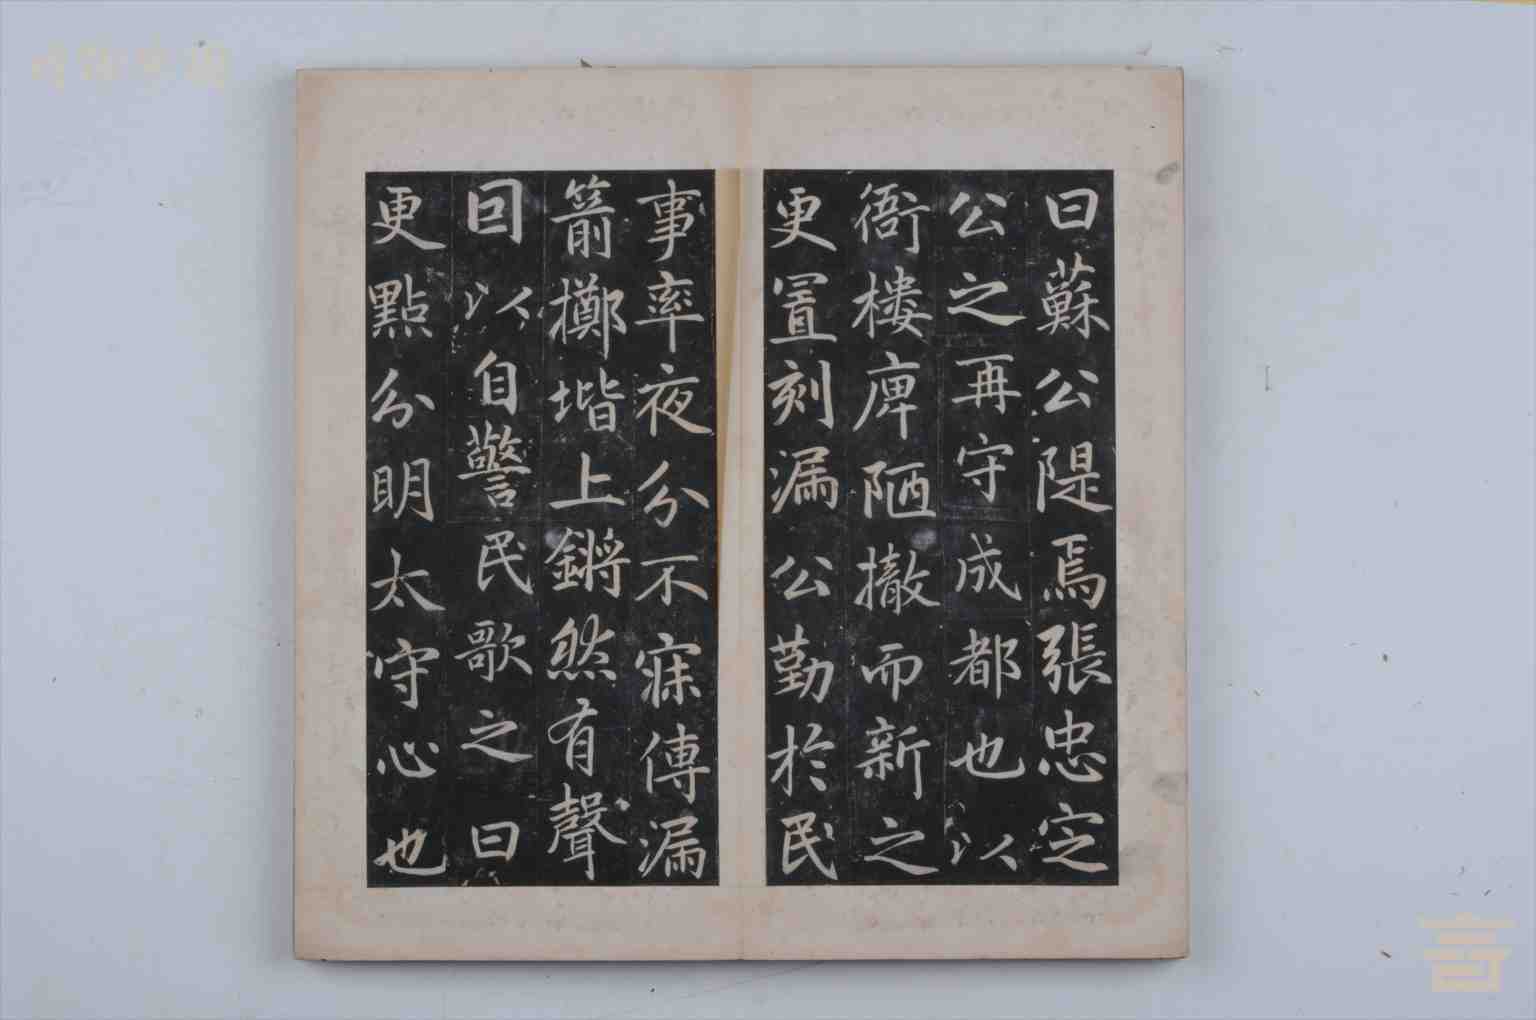 曰蘇公隄焉張忠定
公之再守成都也以
衙樓庳陋撤而新之
更置刻漏公勤於民
事率夜分不寐傳漏
箭擲堦上鏘然有聲
曰以自警民歌之曰
更點分明太守心也